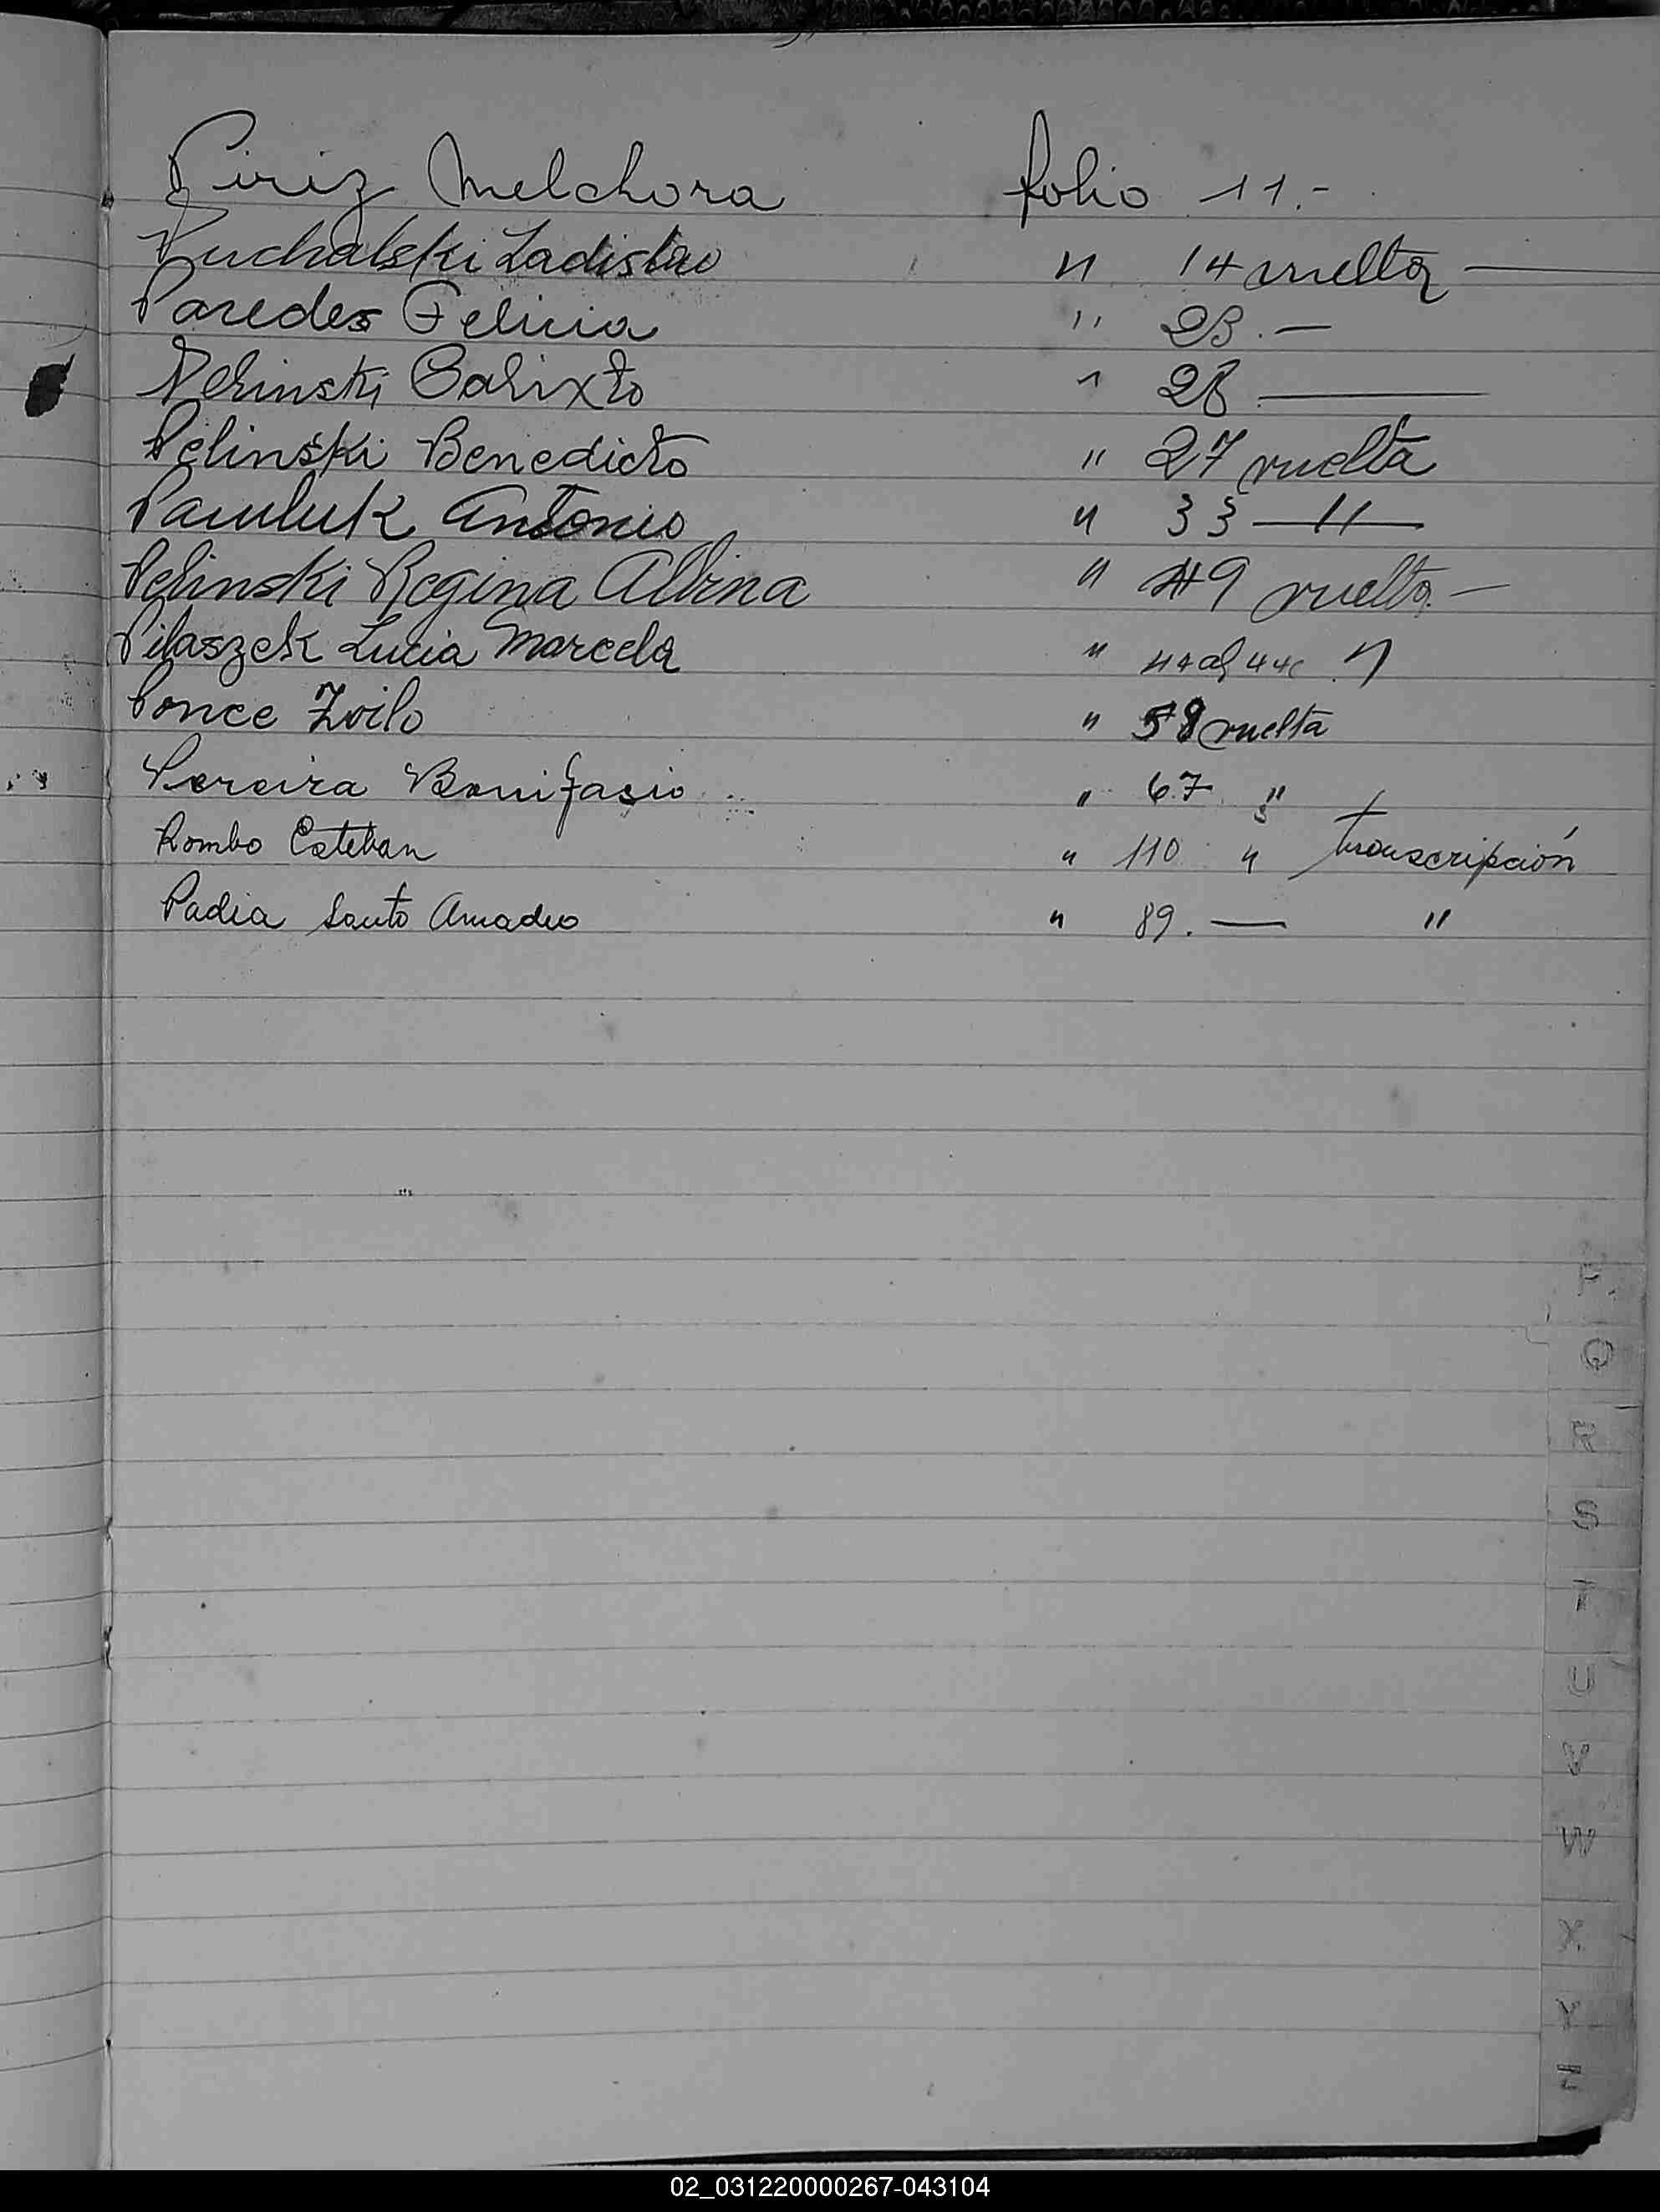 Piriz Melchora folio 11.-
Puchalski Ladislao " 14 vuelta
Paredes Felicia " 23.—
Pelinski Calixto " 28 —
Pelinski Benedicto " 27 vuelta
Pawluk Antonio " 33 — " —
Pelinski Regina Albina " 49 vuelta.—
Pilaszek Lucia Marcela " "
Ponce Zoilo " 58 vuelta
Pereira Bonifasio " 67 "
Pombo Esteban " 110 " transcripción
Padia Santo Amadeo " 89. — "
P
Q
R
S
T
U
V
W
X
Y
Z
02_031220000267-043104